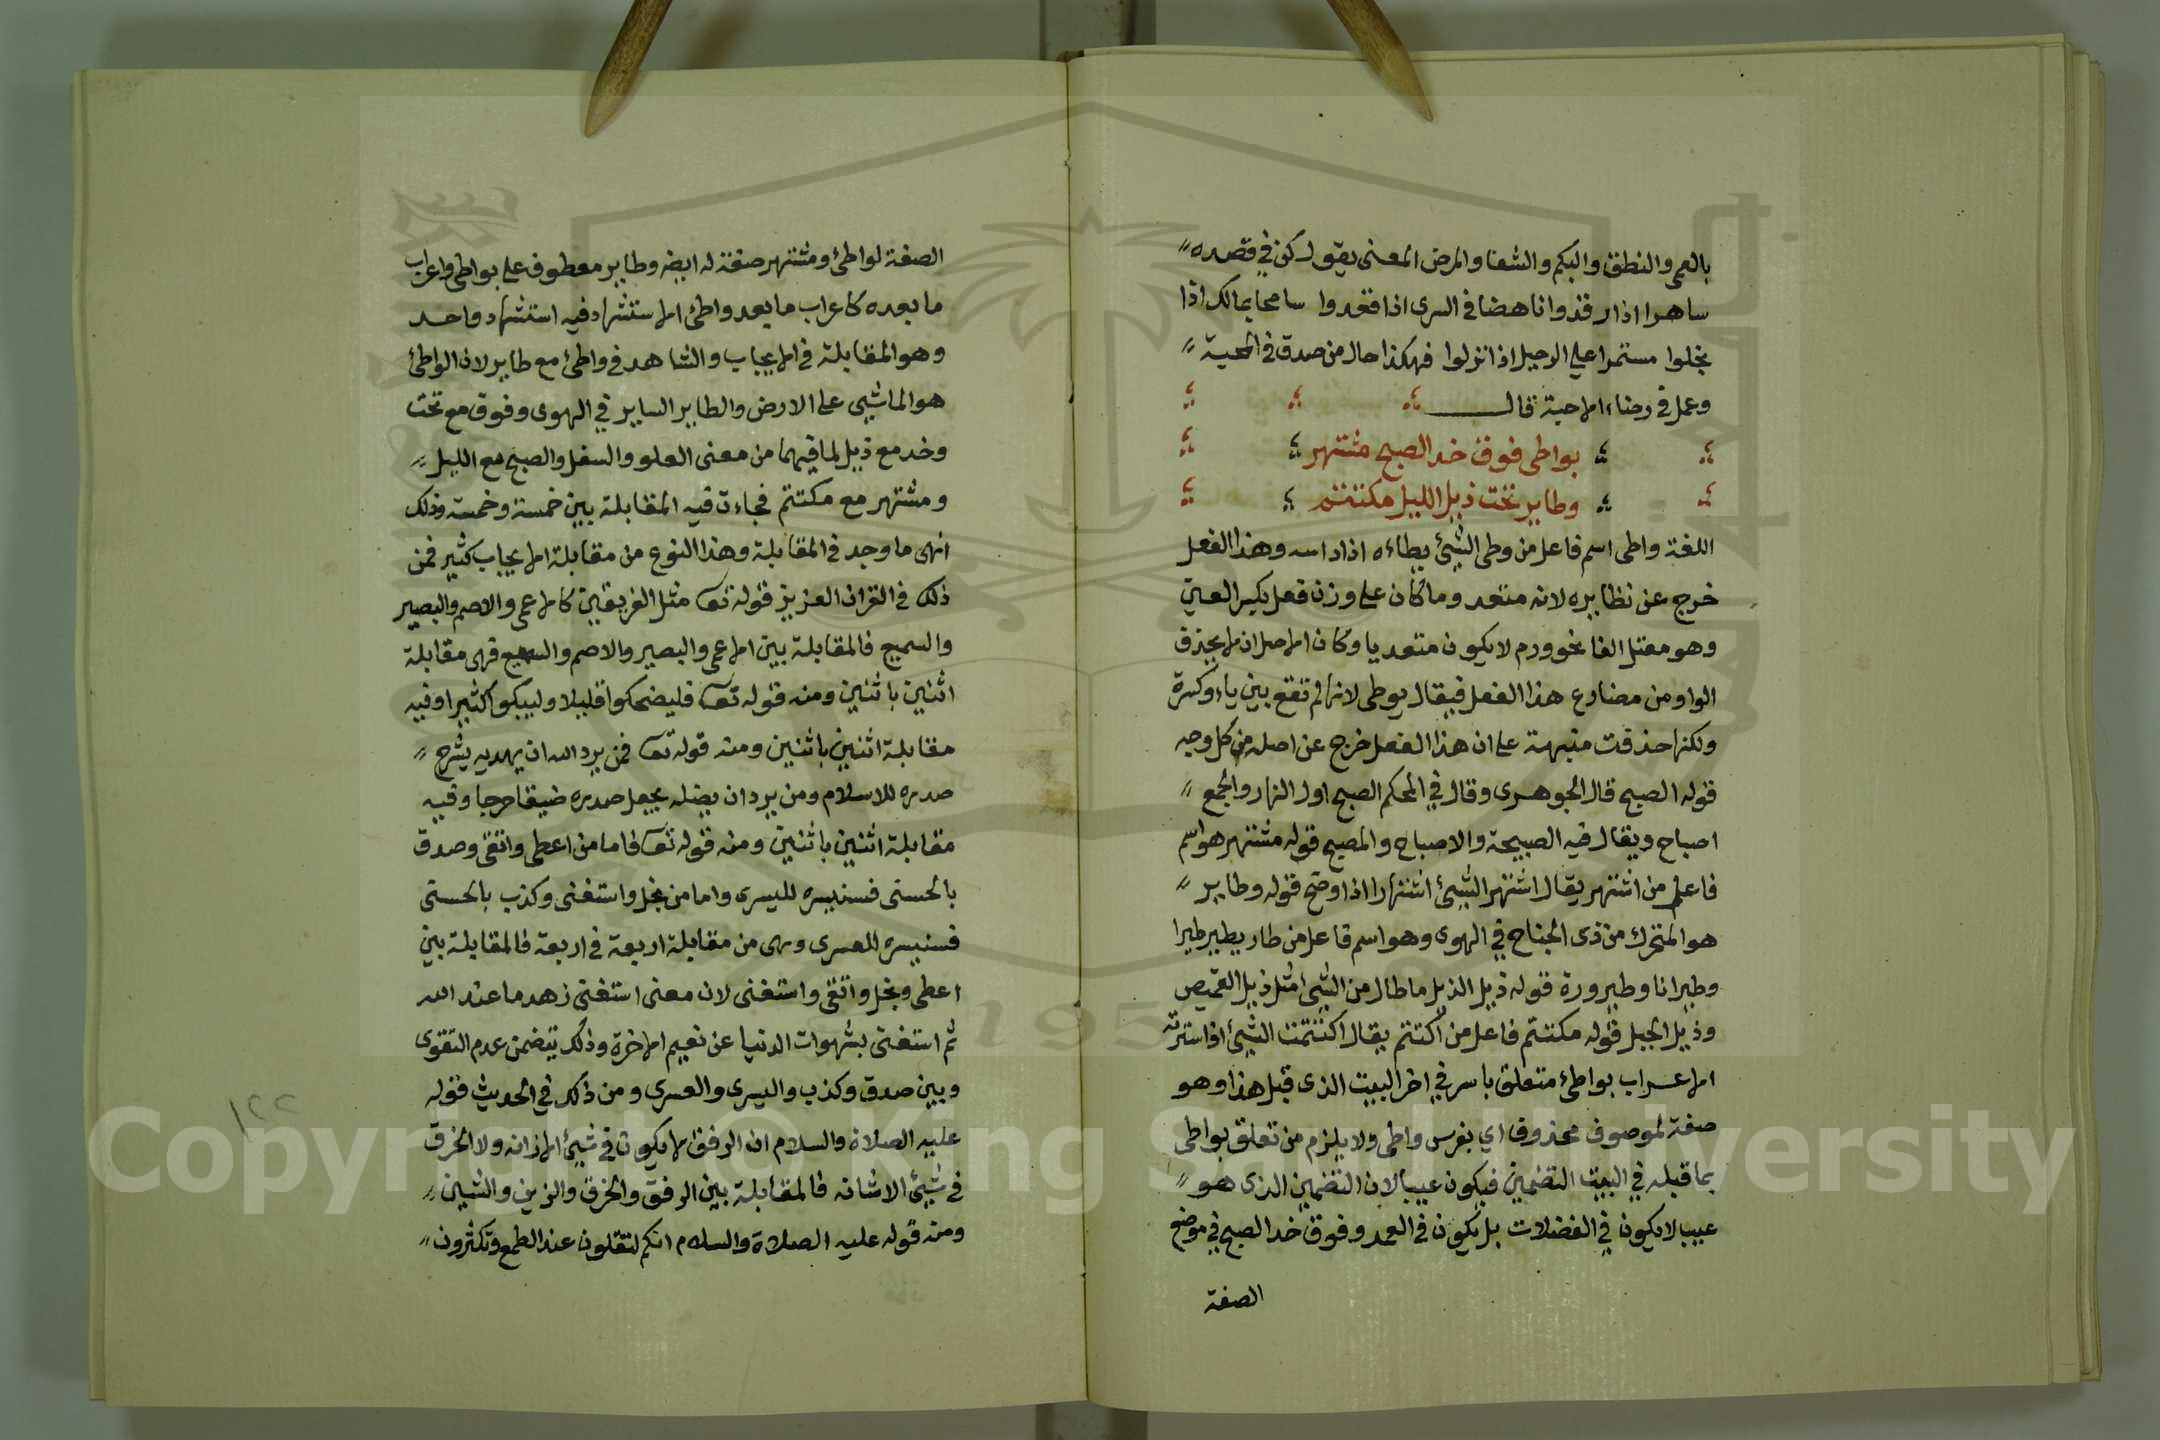 بالعمى والنطق والبكم والشفا والمرض المعنى يقول كن في قصده
ساهرا اذا رقدوا ناهضا في السرى اذا قعدوا سامحا بمالك اذا
بخلوا مستمرا على الرحيل اذا نزلوا فهكذا حال من صدق في المحبة
وعمل في رضاء الاحبة قال
بواطى فوق خد الصبح مشتهر
وطاير تحت ذيل الليل مكتتم
اللغة واطى اسم فاعل من وطى الشئ يطاءه اذا داسه وهذا الفعل
خرج عن نظايره لانه متعد وما كان على وزن فعل بكسر العين
وهو معتل الفا نحو ورم لا يكون متعديا وكان الاصل ان لا يحذف
الواو من مضارع هذا الفعل فيقال يوطى لانها لم تقع بين ياء وكسرة
ولكنها حذفت منبهة على ان هذا الفعل خرج عن اصله من كل وجه
قوله الصبح قال الجوهرى وقال في المحكم الصبح اول النهار والجمع
اصباح ويقال فيه الصبيحة والاصباح والمصبح قوله مشتهر هو اسم
فاعل من اشتهر يقال اشتهر الشئ اشتهارا اذا وضح قوله وطاير
هو المتحرك من ذى الجناح في الهوى وهو اسم فاعل من طار يطير طيرا
وطيرانا وطيرورة قوله ذيل الذيل ما طال من الشئ مثل ذيل القميص
وذيل الجبل قوله مكتتم فاعل من اكتتم يقال اكتتمت الشئ اذا سترته
الاعراب بواطئ متعلق باسر في اخر البيت الذى قبل هذا وهو
صفة لموصوف محذوف اي بفرس واطى ولا يلزم من تعلق بواطى
بما قبله في البيت التضمين فيكون عيبا لان التضمين الذى هو
عيب لا يكون في الفضلات بل يكون في العمد وفوق خد الصبح في موضع
الصفة
الصفة لواطئ ومشتهر صفة له ايضا وطاير معطوف على بواطى واعراب
ما بعده كاعراب ما بعد واطئ الاستشهاد فيه استشهاد واحد
وهو المقابلة في الايجاب والشاهد في واطئ مع طاير لان الواطئ
هو الماشي على الارض والطاير الساير في الهوى وفوق مع تحت
وخد مع ذيل لما فيهما من معنى العلو والسفل والصبح مع الليل
ومشتهر مع مكتتم فجاءت فيه المقابلة بين خمسة وخمسة وذلك
انهى ما وجد في المقابلة وهذا النوع من مقابلة الايجاب كثير فمن
ذلك في القران العزيز قوله تعا مثل الفريقين كالاعمى والاصم والبصير
والسميع فالمقابلة بين الاعمى والبصير والاصم والسميع فهى مقابلة
اثنين باثنين ومنه قوله تعا فليضحكوا قليلا وليبكوا كثيرا وفيه
مقابلة اثنين باثنين ومنه قوله تعا فمن يرد الله ان يهديه يشرح
صدره للاسلام ومن يرد ان يضله يجعل صدره ضيقا حرجا وفيه
مقابلة اثنين باثنين ومنه قوله تعا فاما من اعطى واتقى وصدق
بالحسنى فسنيسره لليسرى واما من بخل واستغنى وكذب بالحسنى
فسنيسره للعسرى وهى من مقابلة اربعة في اربعة فالمقابلة بين
اعطى وبخل واتقى واستغنى لان معنى استغنى زهد ما عند الله
ثم استغنى بشهوات الدنيا عن نعيم الاخرة وذلك يتضمن عدم التقوى
وبين صدق وكذب واليسرى والعسرى ومن ذلك في الحديث قوله
عليه الصلاة والسلام ان الرفق لا يكون في شئ الا زانه ولا الخرق
في شئ الا شانه فالمقابلة بين الرفق والخرق والزين والشين
ومنه قوله عليه الصلاة والسلام انكم لتقلون عند الطمع وتكثرون
١٢٢
Copyright © King Saud University